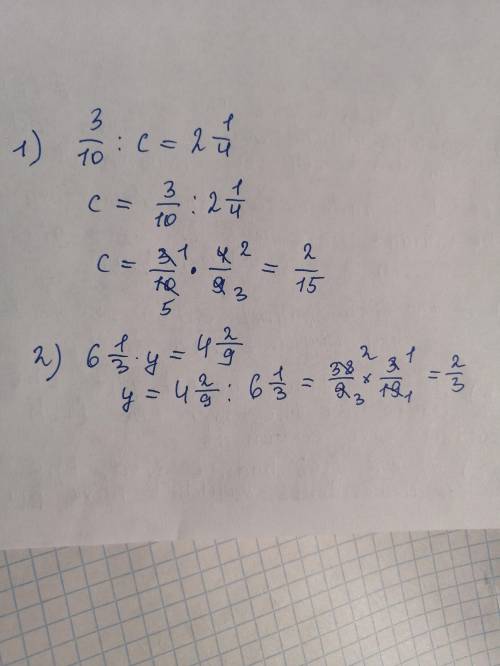 1) 3/10 : c = 2 1/4
c = 3/10 : 2 1/4
c = 3̶ 1/1̶0̶ 5 · 4̶ 2/9̶ 3 = 2/15
2) 6 1/3 · y = 4 2/9
y = 4 2/9 : 6 1/3 = 3̶8̶ 2/9̶ 3 × 3̶ 1/1̶9̶ 1 = 2/3